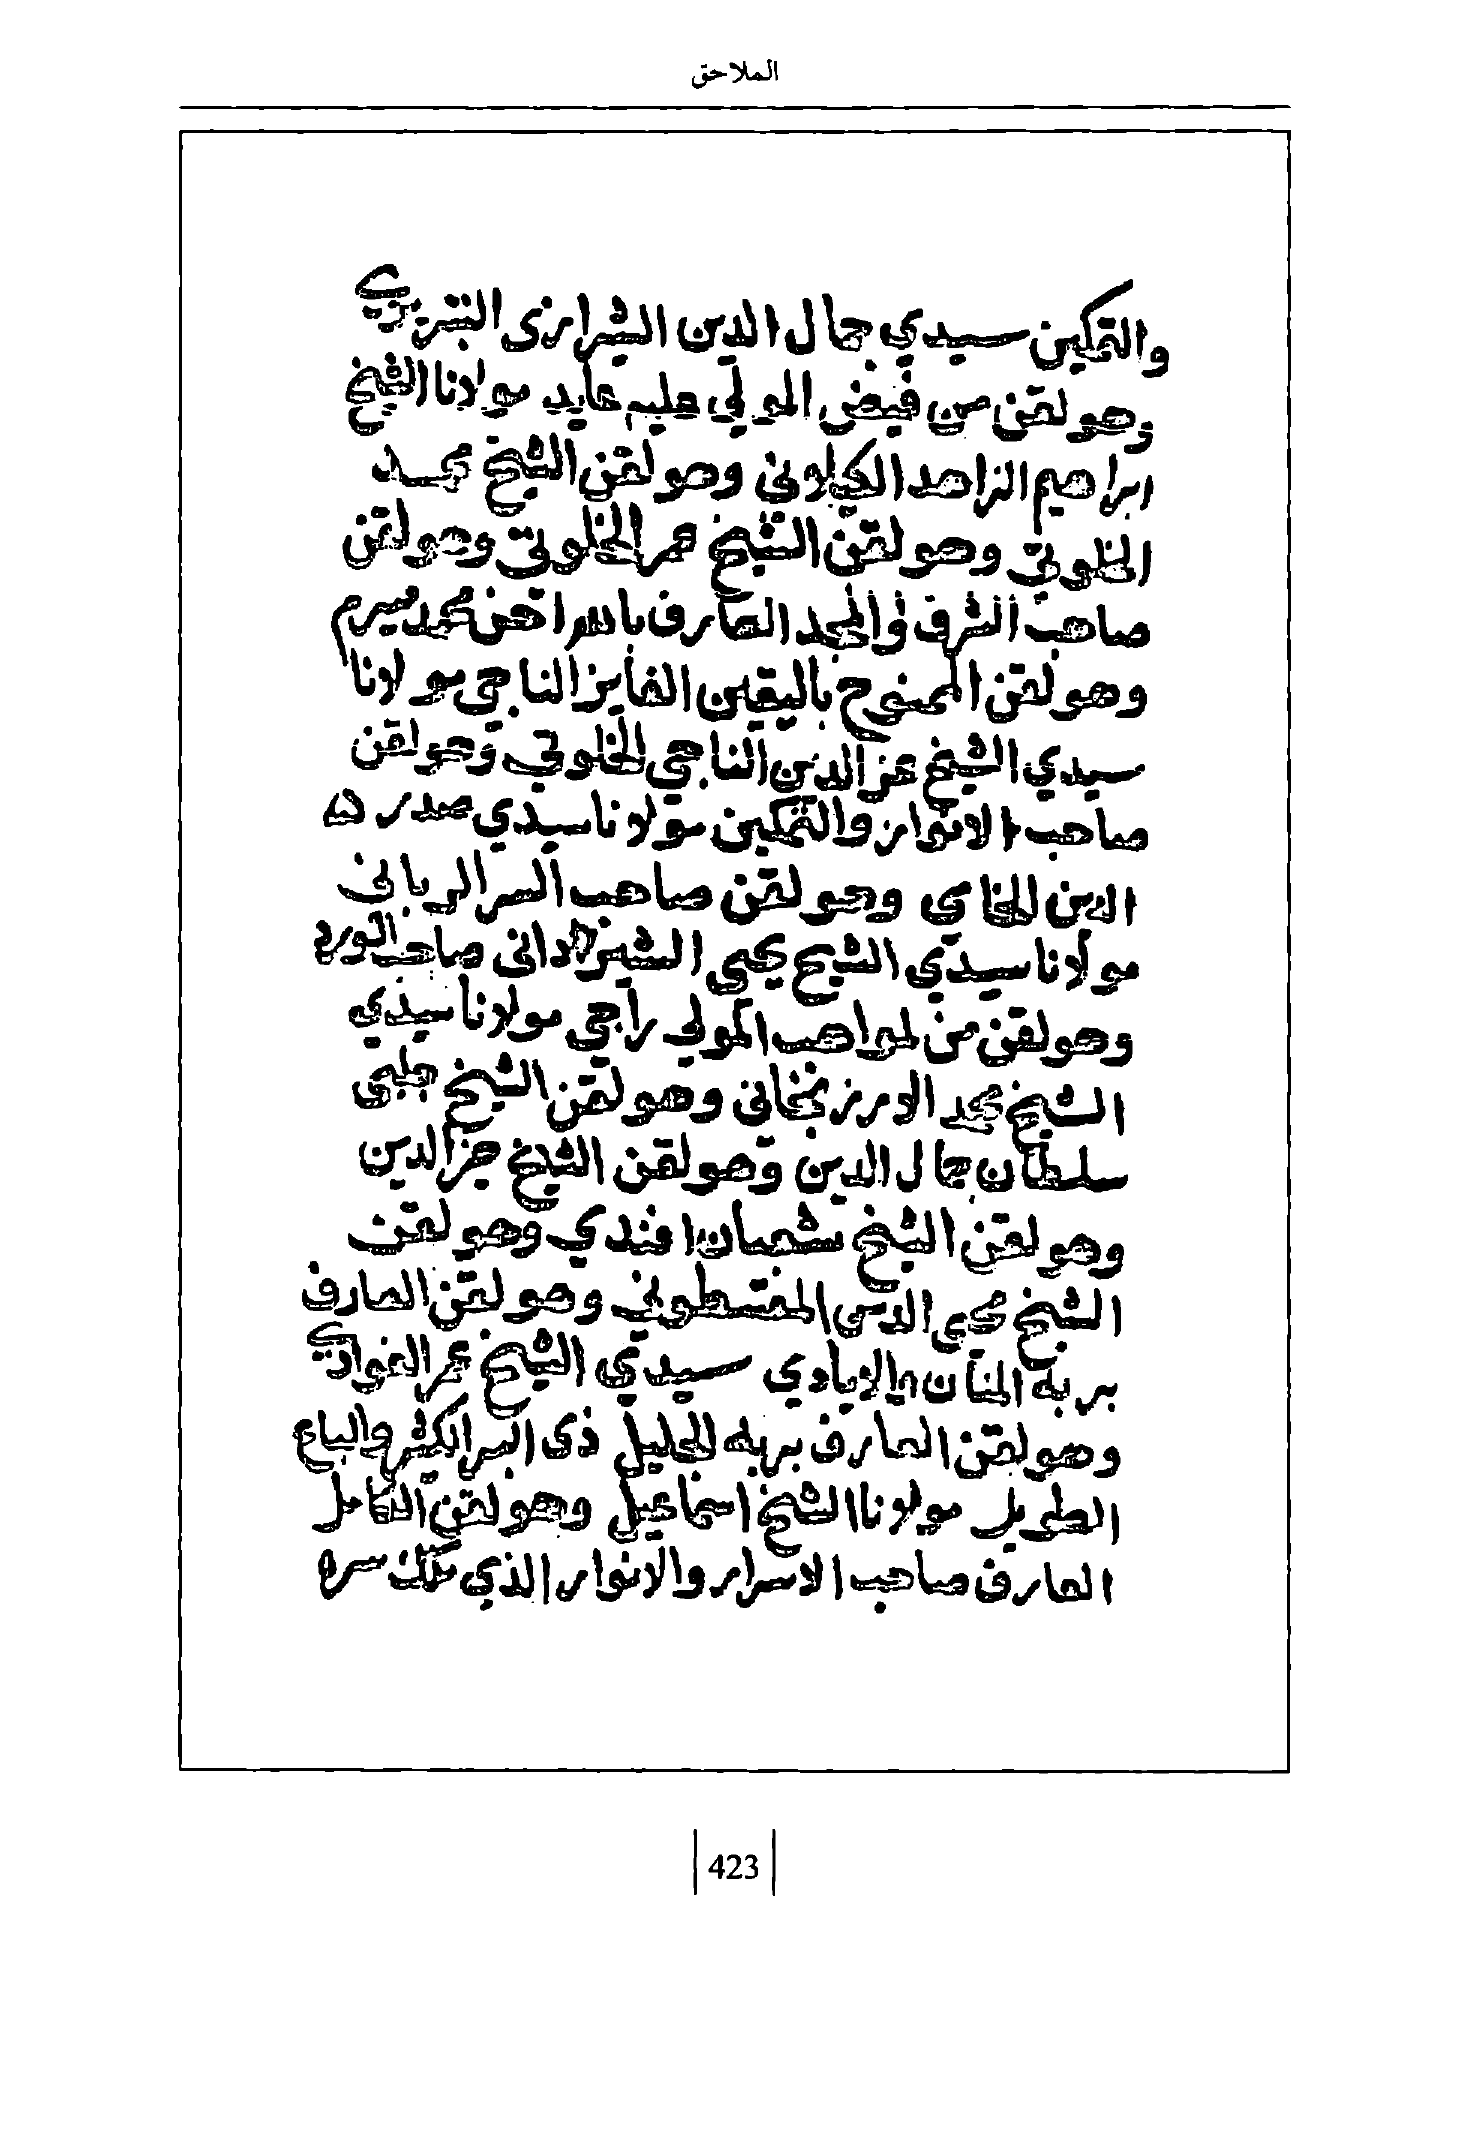 الملاحق
والتمكين سيدي جمال الدين الشيرازى التبريزي
وهو لقن من فيض المولي عليه عايد مولانا الشيخ
ابراهيم الزاهد الكيلاوني وهو لقن الشيخ محمد
الخلوتي وهو لقن الشيخ عمر الخلوتي وهو لقن
صاحب الشرف والمجد العارف بالله اخي محمد ميرم
وهو لقن الممنوح باليقين الفايز الناجي مولانا
سيدي الشيخ عز الدين الناجي الخلوتي وهو لقن
صاحب الانوار والتمكين مولانا سيدي صدر
الدين الخامي وهو لقن صاحب السر الرباني
مولانا سيدي الشيخ يحيى الشيزاداني صاحب الورد
وهو لقن من لمواهب المولي راجي مولانا سيدي
الشيخ محمد الارزنجاني وهو لقن الشيخ جلبى
سلطان جمال الدين وهو لقن الشيخ خير الدين
وهو لقن الشيخ شعبان افندي وهو لقن
الشيخ محيي الدين القسطموني وهو لقن العارف
بربه المنان الايادي سيدي الشيخ عمر الفوادي
وهو لقن العارف بربه الجليل ذى السر الكثير والباع
الطويل مولانا الشيخ اسماعيل وهو لقن الكامل
العارف صاحب الاسرار والانوار الذي سره
423